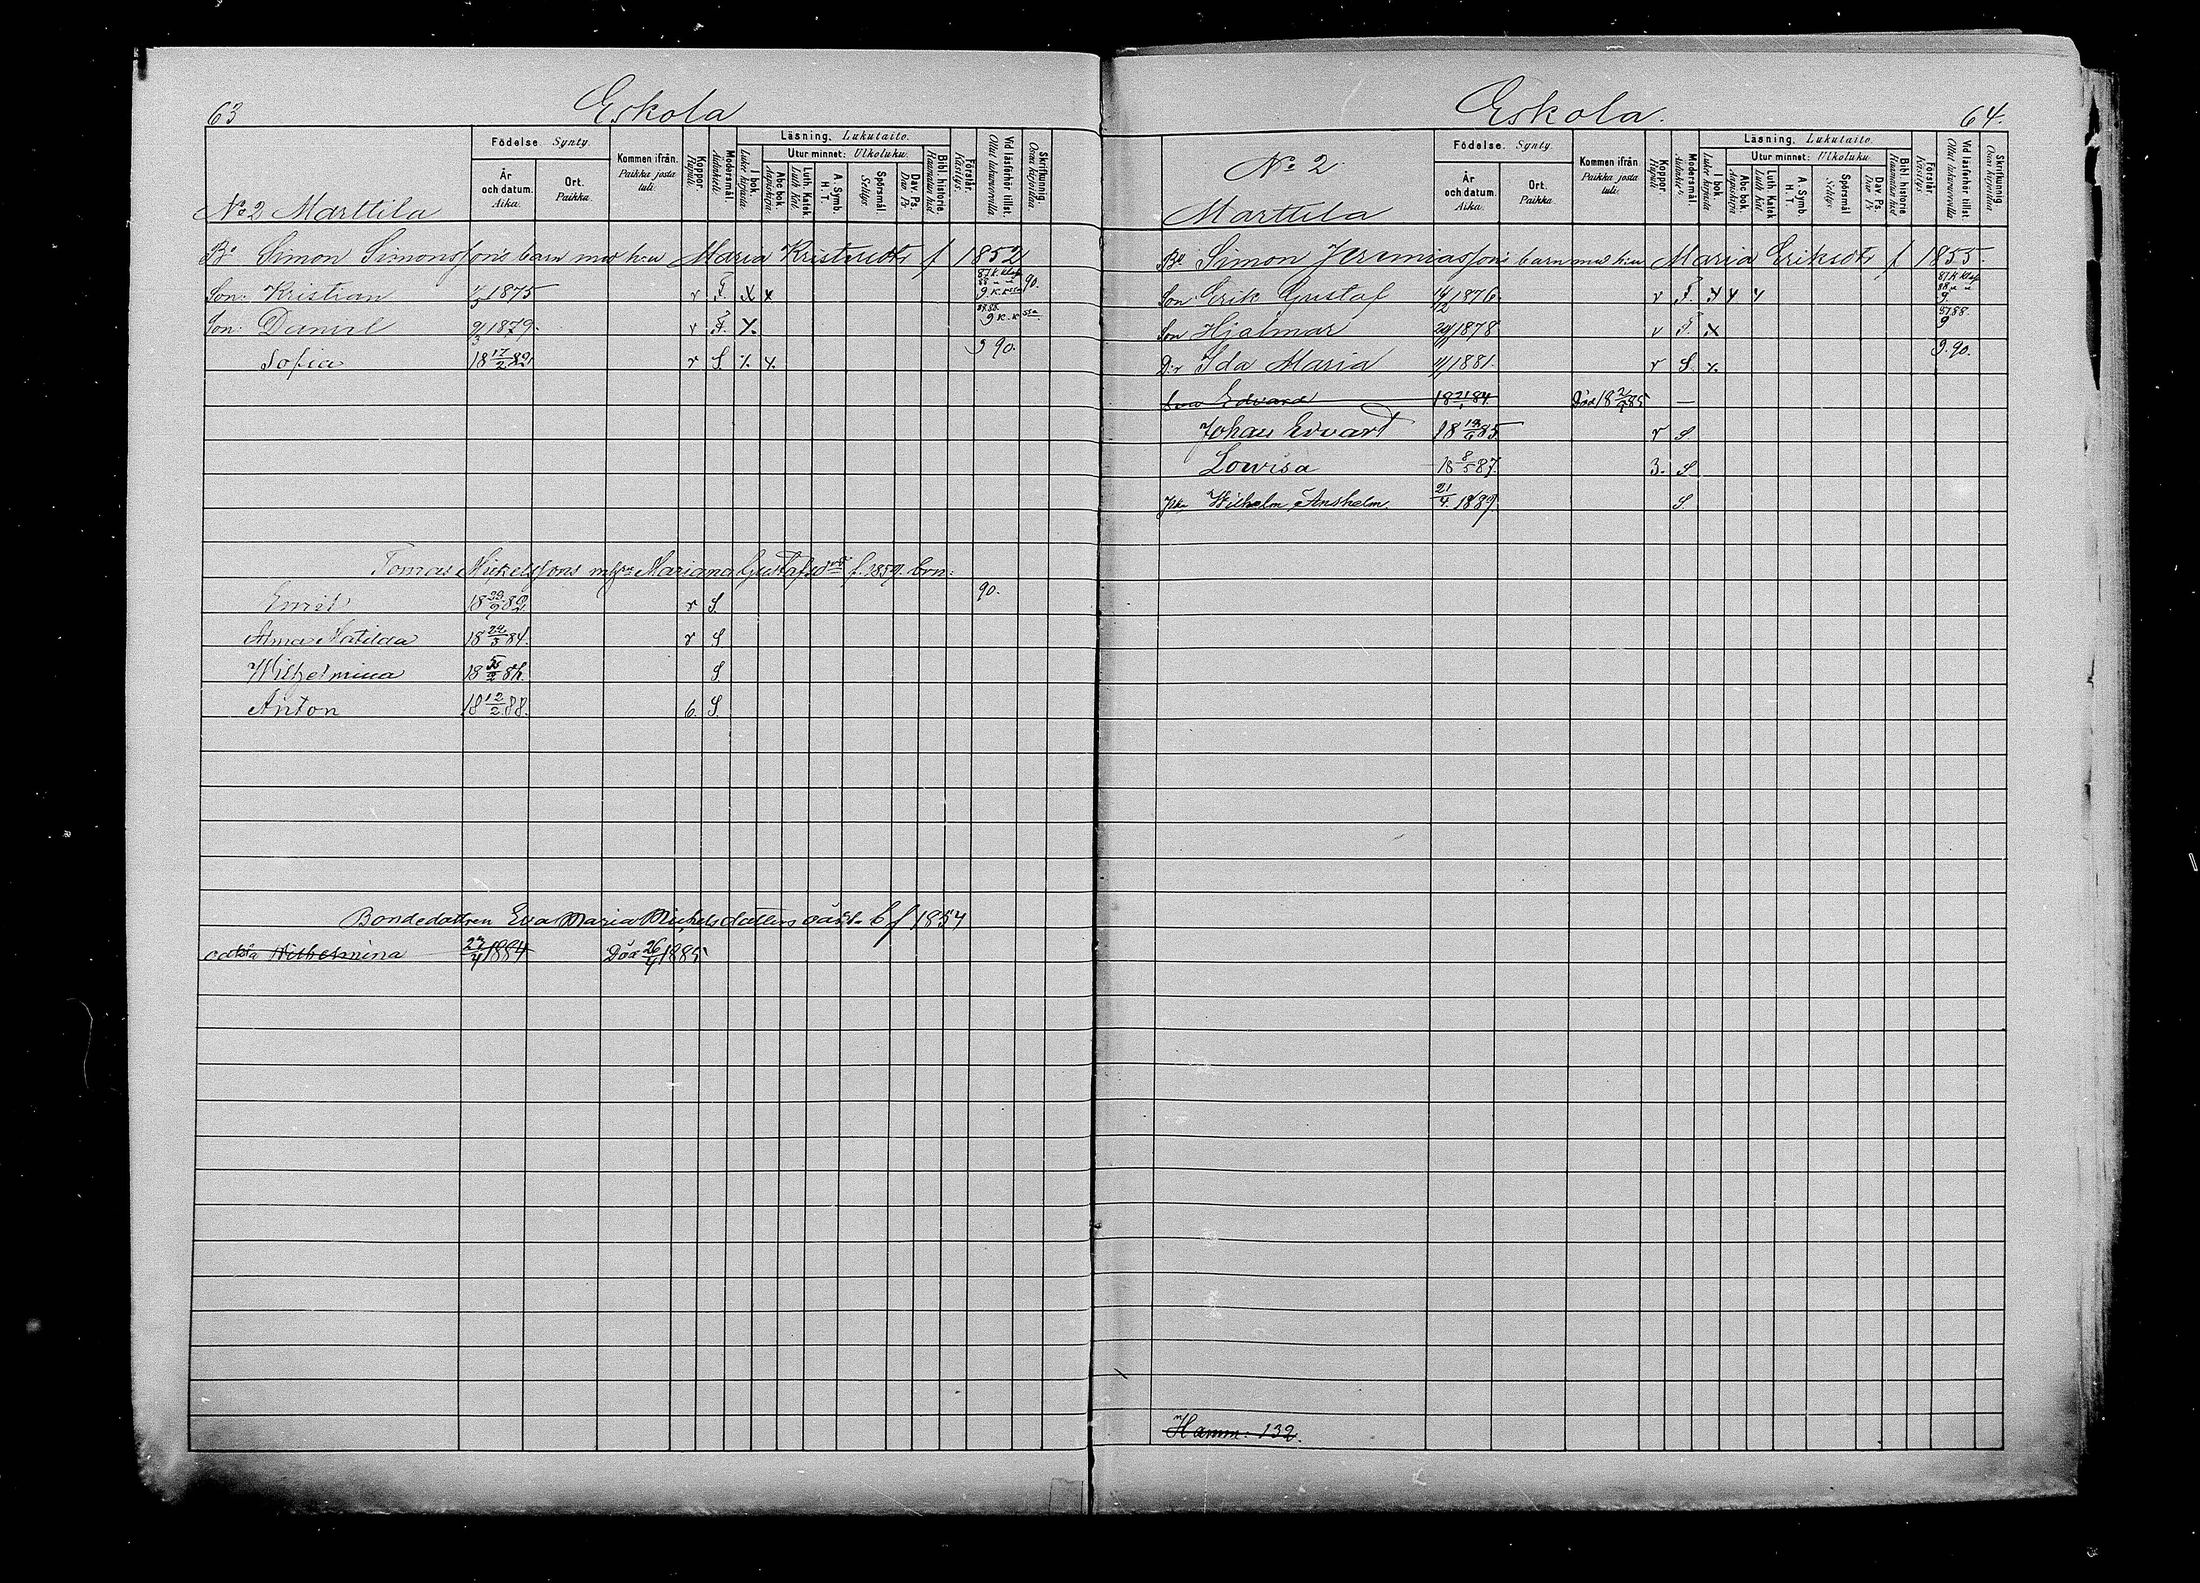 63
Eskola
Födelse Synty.
År och datum. Aika.
Ort. Paikka.
Kommen ifrån. Paikka josta tuli:
Koppor. Rupuli.
Modersmål. Äidinkieli
Läsning. Lukutaito.
I bok. Lukee kirjasta
Utur minnet: Ulkoluku.
Abc bok. Aapiskirja
Luth. Katek. Luth. Kat.
A. Symb. H. T.
Spörsmål. Selitys.
Dav. Ps. Dav. Ps.
Bibl. historie. Raamatun hist.
Förstår. Käsitys.
Vid läsförhör tillst. Ollut lukuvuorolla
Skrifkunning. Osaa kirjoittaa
No 2 Marttila
Bo Simon Simonssons barn med h:u Maria Kristersdtr f 1852
Son: Kristian 1875 r F. x x 90.
Son: Daniel 9/3 1879. r F. x.
Sofia 18 17/2 82. r S x. x. 9 90.
Tomas Mickelssons m h:u Mariana Gustafsdtr f. 1859. brn:
Emil 18 82. r S. 90.
Alma Matilda 18 84. r S
Wilhelmina 18 86. S.
Anton 18 12/2 88. 6. S.
Bondedattren Eva Maria Mickelsdotters oäkta b f 1854
oäkta Wilhelmina 27/4 1884 Död 26/4 1885
Eskola. 64.
Födelse. Synty.
År och datum. Aika.
Ort. Paikka
Kommen ifrån Paikka josta tuli:
Koppor Rupuli
Modersmål.
Läsning, Lukutaito.
I bok. Lukee kirjasta
Utur minnet: Ulkoluku
Abc bok. Aapiskirja
Luth Katek Luth Kat.
A. Symb. H. T.
Spörsmål Selitys
Dav. Ps. Dav. Ps
Bibl. historie Raamatun hist
Förstår. Käsitys
Vid läsförhör tillst Ollut lukuvuorolla
Skrifkunning. Osaa kirjoittaa
No 2
Marttila
Bo Simon Jeremiassons barn med h:u Maria Eriksdtr f 1855.
Son Erik Gustaf 1876. r F. x x x
Son Hjalmar 1878 r F. x
D:r Ida Maria 1881. r S x. 9. 90.
Son Edvard 18 21/1 84. Död 18 85 —
Johan Edvard 18 85. r S
Lovisa 18 8/5 87. 3. S
Wilhelm Anshelm 21/4 1889. S
Hamm: 132.